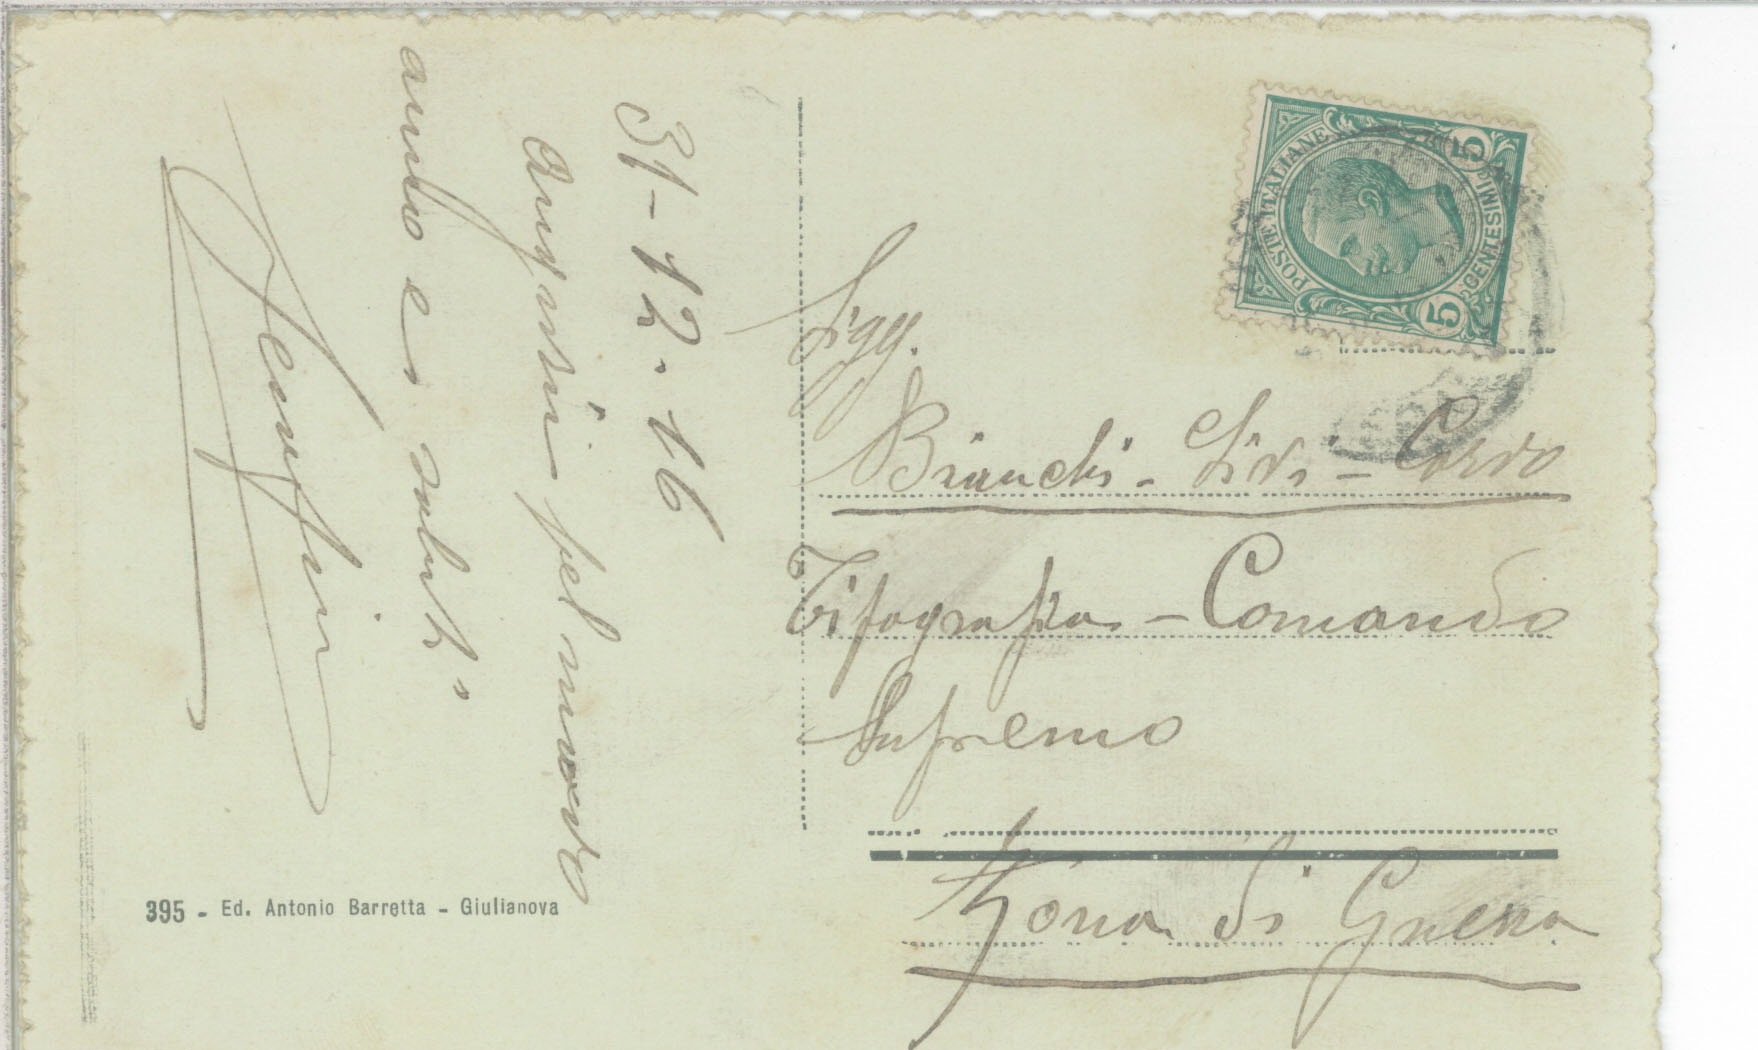 31-12-16
Auguri pel nuovo
anno e saluti
395 - Ed. Antonio Barretta - Giulianova
POSTE ITALIANE
CENTESIMI
5
5
Sigg.
Bianchi - Lidi - Cordo
Tipografia - Comando
Supremo
Zona di Guerra